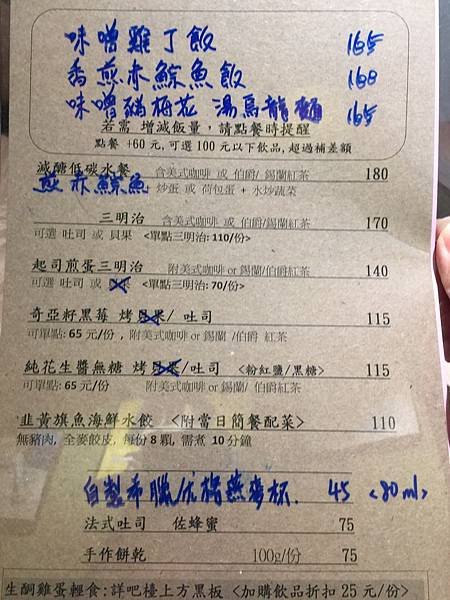 味噌雞丁飯 165
香煎赤鯮魚飯 160
味噌豬梅花 湯烏龍麵 165
若需 增減飯量，請點餐時提醒
點餐 +60 元, 可選 100 元以下飲品, 超過補差額
減醣低碳水餐 含美式咖啡 或 伯爵/ 錫蘭紅茶 180
煎赤鯮魚 炒蛋 或 荷包蛋 + 水炒蔬菜
三明治 含美式咖啡 或 伯爵/錫蘭紅茶 170
可選 吐司 或 貝果 <單點三明治: 110/份>
起司煎蛋三明治 附美式咖啡 or 錫蘭/伯爵紅茶 140
可選 吐司 或 <單點三明治: 70/份>
奇亞籽黑莓 烤貝果/ 吐司 115
可單點: 65 元/份 , 附美式咖啡 or 錫蘭 /伯爵 紅茶
純花生醬無糖 烤貝果/吐司 <粉紅鹽/黑糖> 115
可單點: 65 元/份 附美式咖啡 or 錫蘭/ 伯爵紅茶
韭黃旗魚海鮮水餃 <附當日簡餐配菜> 110
無豬肉, 全麥餃皮, 每份 8 顆, 需煮 10 分鐘
自製希臘/優格燕麥杯. 45 <80ml>
法式吐司 佐蜂蜜 75
手作餅乾 100g/份 75
生酮雞蛋輕食:詳吧檯上方黑板 <加購飲品折扣 25 元/份>